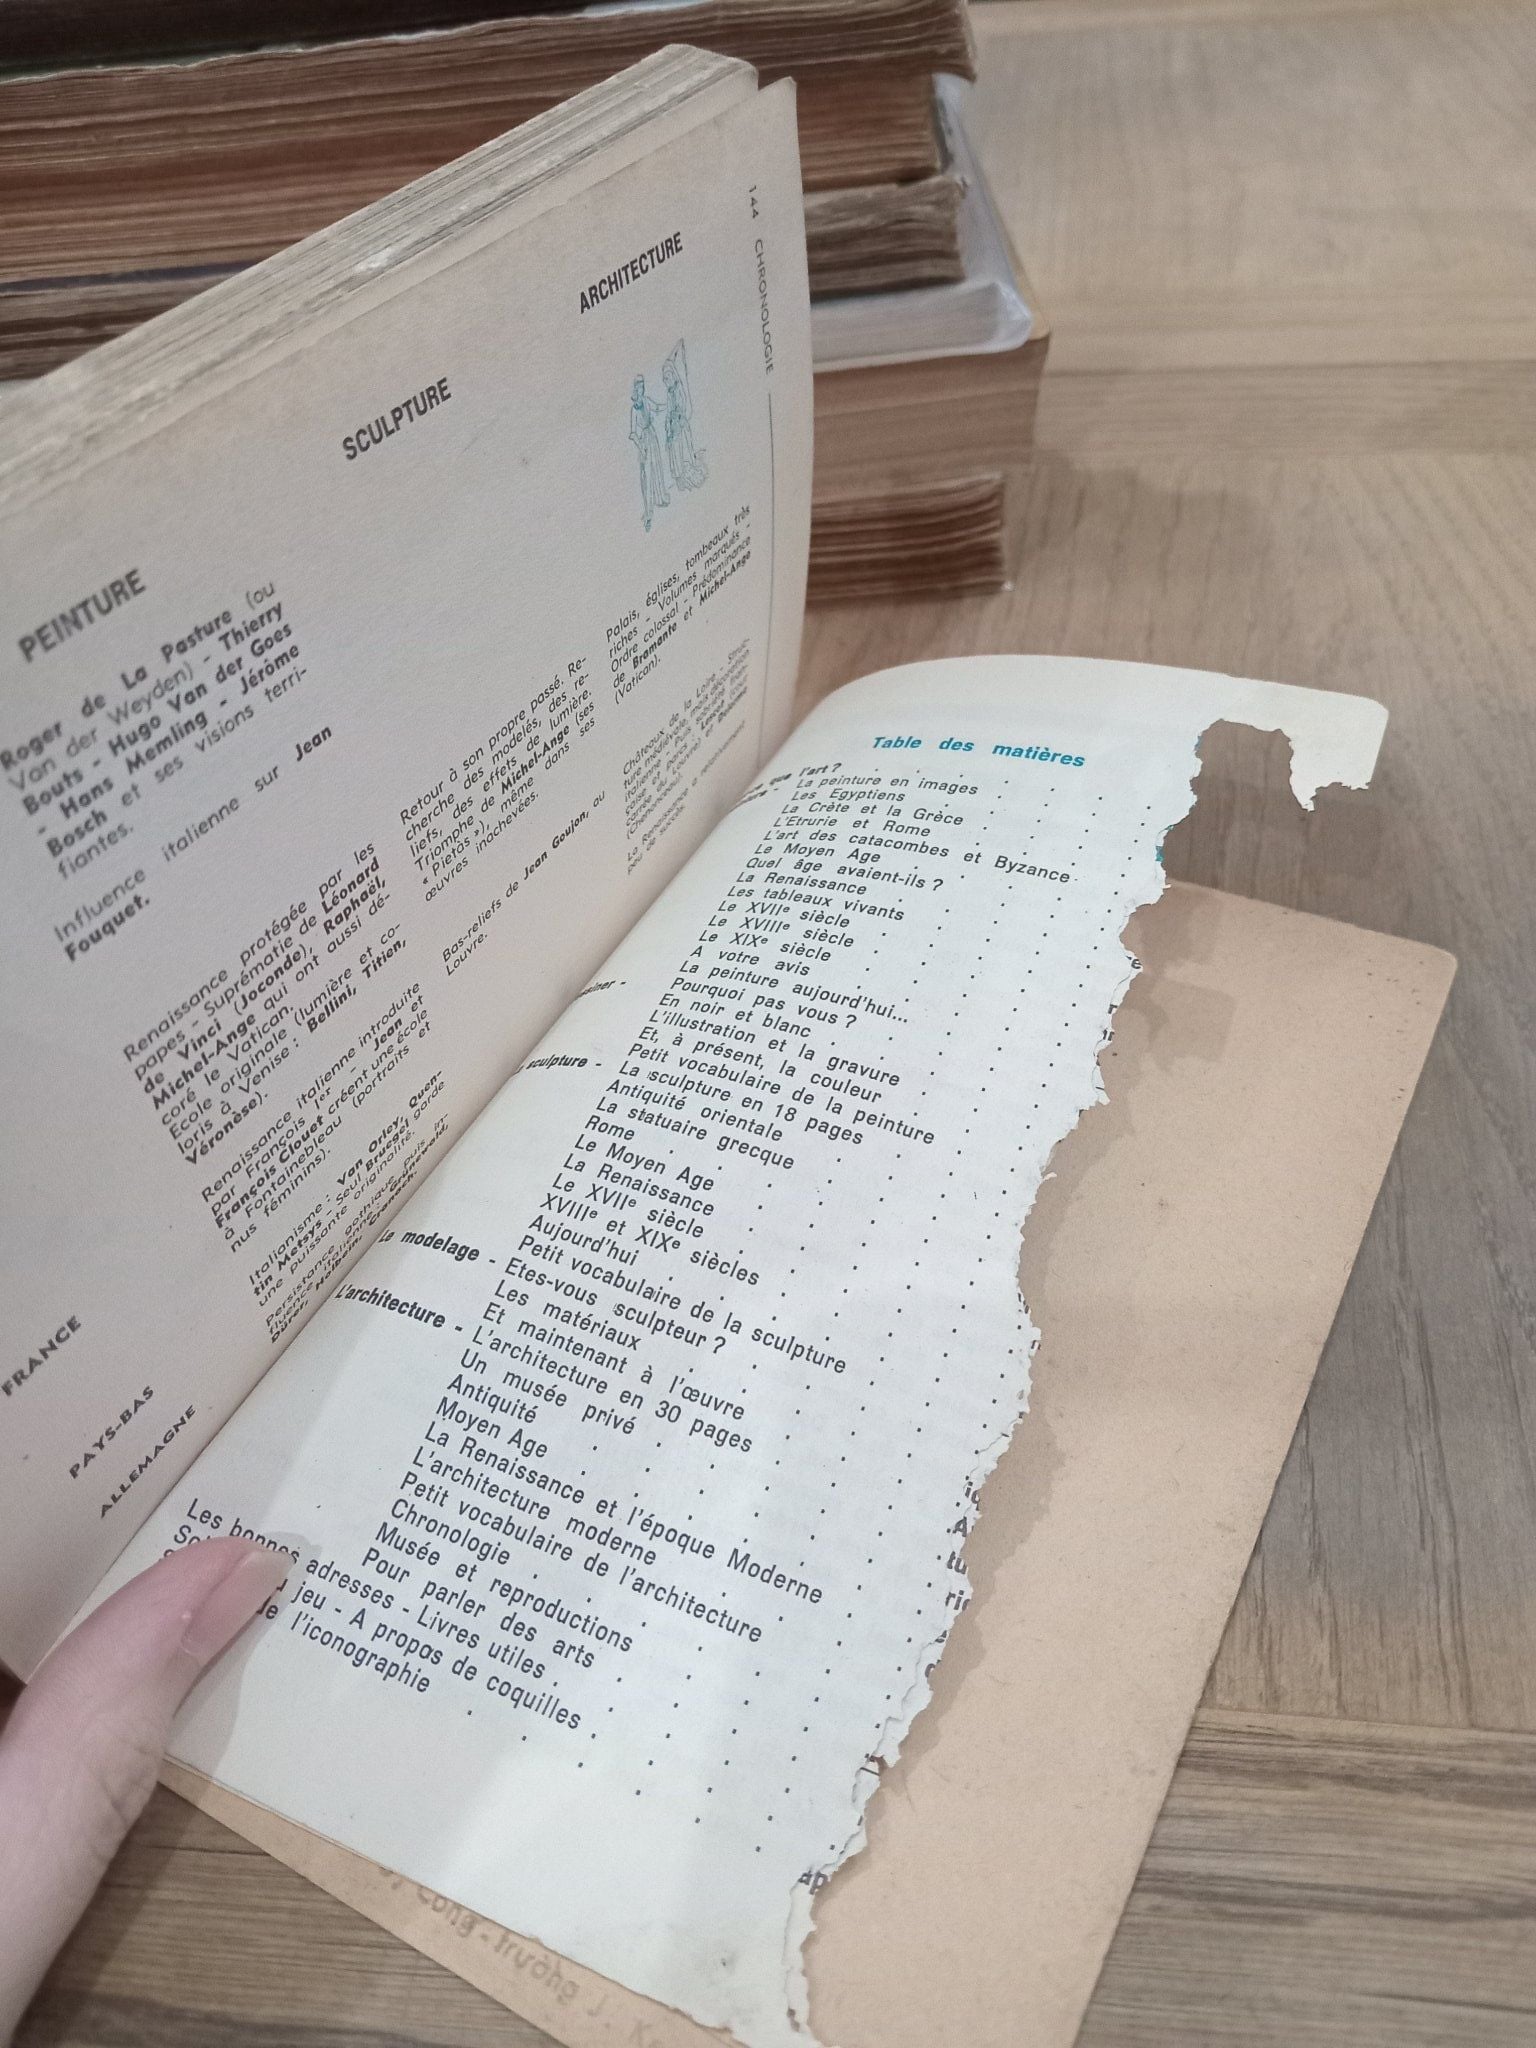 144 CHRONOLOGIE
ARCHITECTURE
SCULPTURE
PEINTURE
Palais, églises, tombeaux très
riches - Volumes marqués -
Ordre colossal - Prédominance
de Bramante et Michel-Ange
(Vatican).
Châteaux de la Loire - Struc-
ture médiévale, mais décoration
italienne - Puis sobriété fran-
çaise et parcs - Lescot (cour
carrée du Louvre) et Delorme
(Chenonceau).
La Renaissance a relativement
peu de succès.
Retour à son propre passé. Re-
cherche des modelés, des re-
liefs, des effets de lumière.
Triomphe de Michel-Ange (ses
« Pietàs »), même dans ses
œuvres inachevées.
Bas-reliefs de Jean Goujon, au
Louvre.
Roger de La Pasture (ou
Van der Weyden) - Thierry
Bouts - Hugo Van der Goes
- Hans Memling - Jérôme
Bosch et ses visions terri-
fiantes.
Influence italienne sur Jean
Fouquet.
Renaissance protégée par les
papes - Suprématie de Léonard
de Vinci (Joconde), Raphaël,
Michel-Ange qui ont aussi dé-
coré le Vatican.
Ecole originale (lumière et co-
loris à Venise : Bellini, Titien,
Véronèse).
Renaissance italienne introduite
par François 1er - Jean et
François Clouet créent une école
à Fontainebleau (portraits et
nus féminins).
Italianisme : Van Orley, Quen-
tin Metsys - Seul Bruegel garde
une puissante originalité.
Persistance gothique puis in-
fluence italienne : Grünewald,
Dürer, Holbein, Cranach.
FRANCE
PAYS-BAS
ALLEMAGNE
Table des matières
que l'art ?
La peinture en images
Les Egyptiens
La Crète et la Grèce
L'Etrurie et Rome
L'art des catacombes et Byzance
Le Moyen Age
Quel âge avaient-ils ?
La Renaissance
Les tableaux vivants
Le XVIIe siècle
Le XVIIIe siècle
Le XIXe siècle
A votre avis
La peinture aujourd'hui...
Pourquoi pas vous ?
En noir et blanc
L'illustration et la gravure
Et, à présent, la couleur
Petit vocabulaire de la peinture
sculpture - La sculpture en 18 pages
Antiquité orientale
La statuaire grecque
Rome
Le Moyen Age
La Renaissance
Le XVIIe siècle
XVIIIe et XIXe siècles
Aujourd'hui
Petit vocabulaire de la sculpture
Le modelage - Etes-vous sculpteur ?
Les matériaux
Et maintenant à l'œuvre
L'architecture - L'architecture en 30 pages
Un musée privé
Antiquité
Moyen Age
La Renaissance et l'époque Moderne
L'architecture moderne
Petit vocabulaire de l'architecture
Chronologie
Musée et reproductions
Pour parler des arts
Les bonnes adresses - Livres utiles
jeu - A propos de coquilles
de l'iconographie